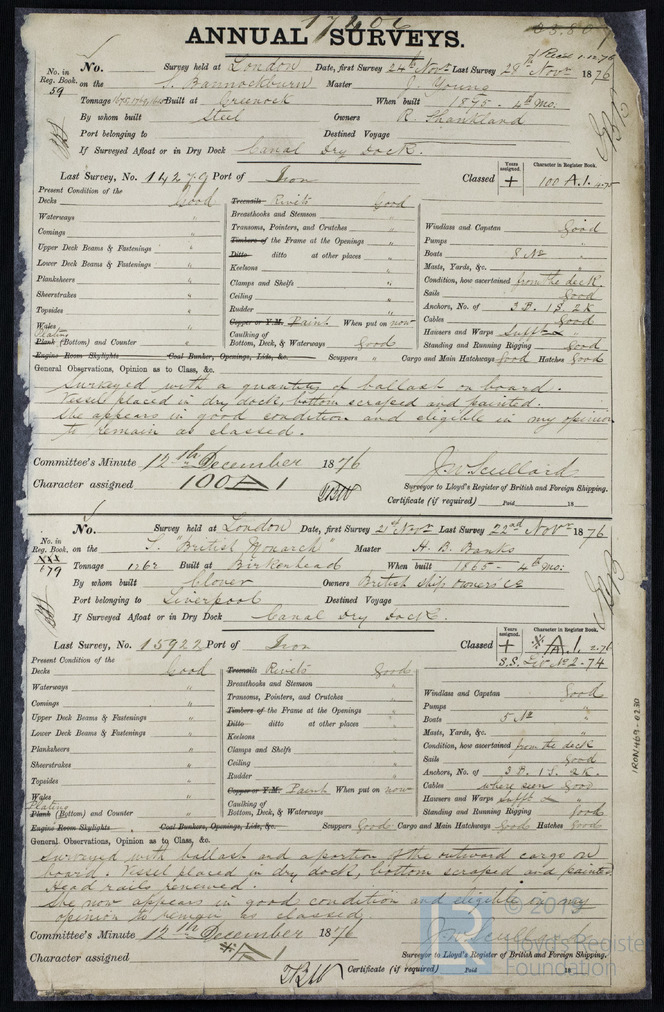 17206
ANNUAL SURVEYS.
23.807
No. in Reg. Book. 59
No. Survey held at London Date, first Survey 24th Novr Last Survey 28th Novr 1876
on the S. Bannockburn Master J. Young
Tonnage Built at Greenock When built 1875 - 4th Mo:
By whom built Steel Owners R. Shankland
Port belonging to Destined Voyage
If Surveyed Afloat or in Dry Dock Canal Dry Dock.
Last Survey, No. 14279 Port of Iron Classed Years assigned. + Character in Register Book. 100 A.1. 4.75
Present Condition of the
Decks Good
Waterways "
Comings "
Upper Deck Beams & Fastenings "
Lower Deck Beams & Fastenings "
Planksheers "
Sheerstrakes "
Topsides "
Wales "
Plating
Plank (Bottom) and Counter "
Engine Room Skylights Coal Bunker, Openings, Lids, &c. Scuppers " Cargo and Main Hatchways Good Hatches Good
Treenails Rivets Good
Breasthooks and Stemson "
Transoms, Pointers, and Crutches "
Timbers of the Frame at the Openings "
Ditto ditto at other places "
Keelsons "
Clamps and Shelfs "
Ceiling "
Rudder "
Copper or Y.M. Paint When put on now
Caulking of
Bottom, Deck, & Waterways Good
Windlass and Capstan Good
Pumps "
Boats 8 No "
Masts, Yards, &c. "
Condition, how ascertained from the deck.
Sails Good
Anchors, No. of 3 B. 1 S. 2 K.
Cables Good
Hawsers and Warps Sufft "
Standing and Running Rigging Good
General Observations, Opinion as to Class, &c.
Surveyed with a quantity of ballast on board.
Vessel placed in dry dock, bottom scraped and painted.
She appears in good condition and eligible in my opinion
to remain as classed.
Committee's Minute 12th December 1876
Character assigned 100 A 1
J. W. Scullard
Surveyor to Lloyd's Register of British and Foreign Shipping.
Certificate (if required) Paid 18
No. in Reg. Book. 179
No. Survey held at London Date, first Survey 21st Novr Last Survey 22nd Novr 1876
on the S. "British Monarch" Master H. B. Banks
Tonnage 1262 Built at Birkenhead When built 1865 - 4th Mo:
By whom built Clover Owners British Ship Owners Co
Port belonging to Liverpool Destined Voyage
If Surveyed Afloat or in Dry Dock Canal Dry Dock.
Last Survey, No. 15922 Port of Iron Classed Years assigned. + Character in Register Book. A.1. 2.76
S.S. Liv. No 2-74
Present Condition of the
Decks Good
Waterways "
Comings "
Upper Deck Beams & Fastenings "
Lower Deck Beams & Fastenings "
Planksheers "
Sheerstrakes "
Topsides "
Wales "
Plating
Plank (Bottom) and Counter "
Engine Room Skylights Coal Bunkers, Openings, Lids, &c. Scuppers Good Cargo and Main Hatchways Good Hatches Good
Treenails Rivets Good
Breasthooks and Stemson "
Transoms, Pointers, and Crutches "
Timbers of the Frame at the Openings "
Ditto ditto at other places "
Keelsons "
Clamps and Shelfs "
Ceiling "
Rudder "
Copper or Y.M. Paint When put on now
Caulking of
Bottom, Deck, & Waterways "
Windlass and Capstan Good
Pumps "
Boats 5 No "
Masts, Yards, &c. "
Condition, how ascertained from the deck
Sails Good
Anchors, No. of 3 B. 1 S. 2 K.
Cables where seen Good
Hawsers and Warps Sufft "
Standing and Running Rigging Good
General Observations, Opinion as to Class, &c.
Surveyed with ballast and a portion of the outward cargo on
board. Vessel placed in dry dock, bottom scraped and painted
Head rails renewed.
She now appears in good condition and eligible in my
opinion to remain as classed
Committee's Minute 12th December 1876
Character assigned A 1
J. W. Scullard
Surveyor to Lloyd's Register of British and Foreign Shipping.
Certificate (if required) Paid 18
IRON469-0230
© 2019
Lloyd's Register
Foundation